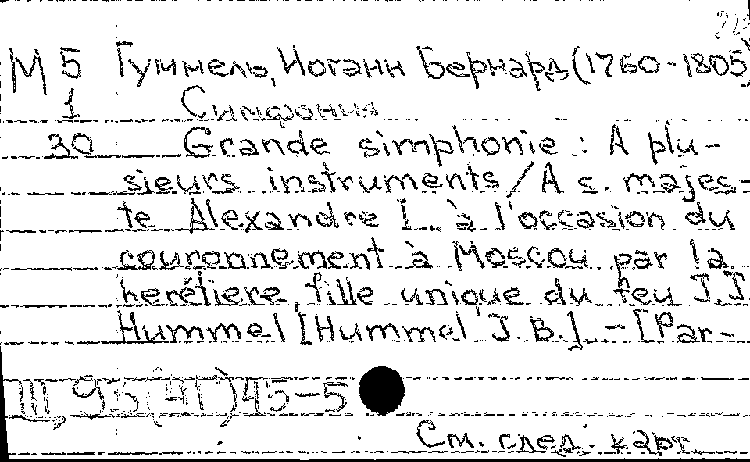 М 5 Гуммель, Иоганн Бернард (1760-1805)
1 Симфония
30 Grande simphonie : A plu-
sieurs instruments / A s. majes-
te Alexandre I à l'occasion du
couronnement à Moscou par la
herétiere, fille unique du feu J.J.
Hummel [Hummel J.B.]. - [Par-
III, 95(41)45-5
См. след. карт.